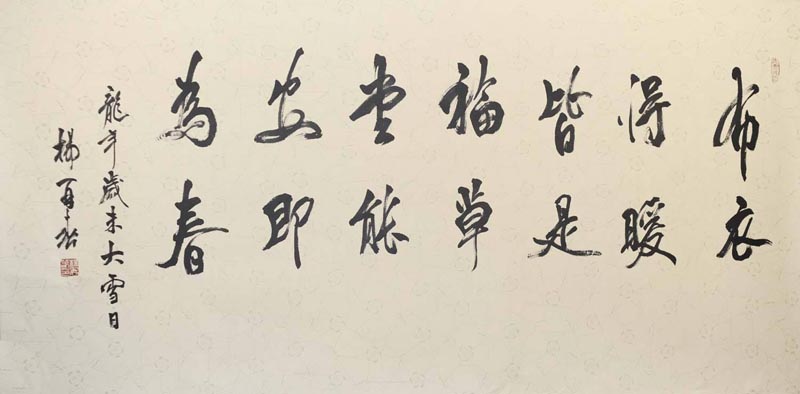 布衣
得暖
皆是
福草
堂能
安即
為春
龍年歲末大雪日
楊再